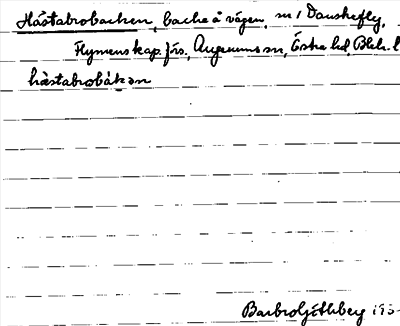 Hästabrobacken, backe å vägen, m/ Danskefly,
Flymens kap. förs., Augerums sn, Östra hd, Blek. l
hästabrobákan
Barbro Götlberg 195